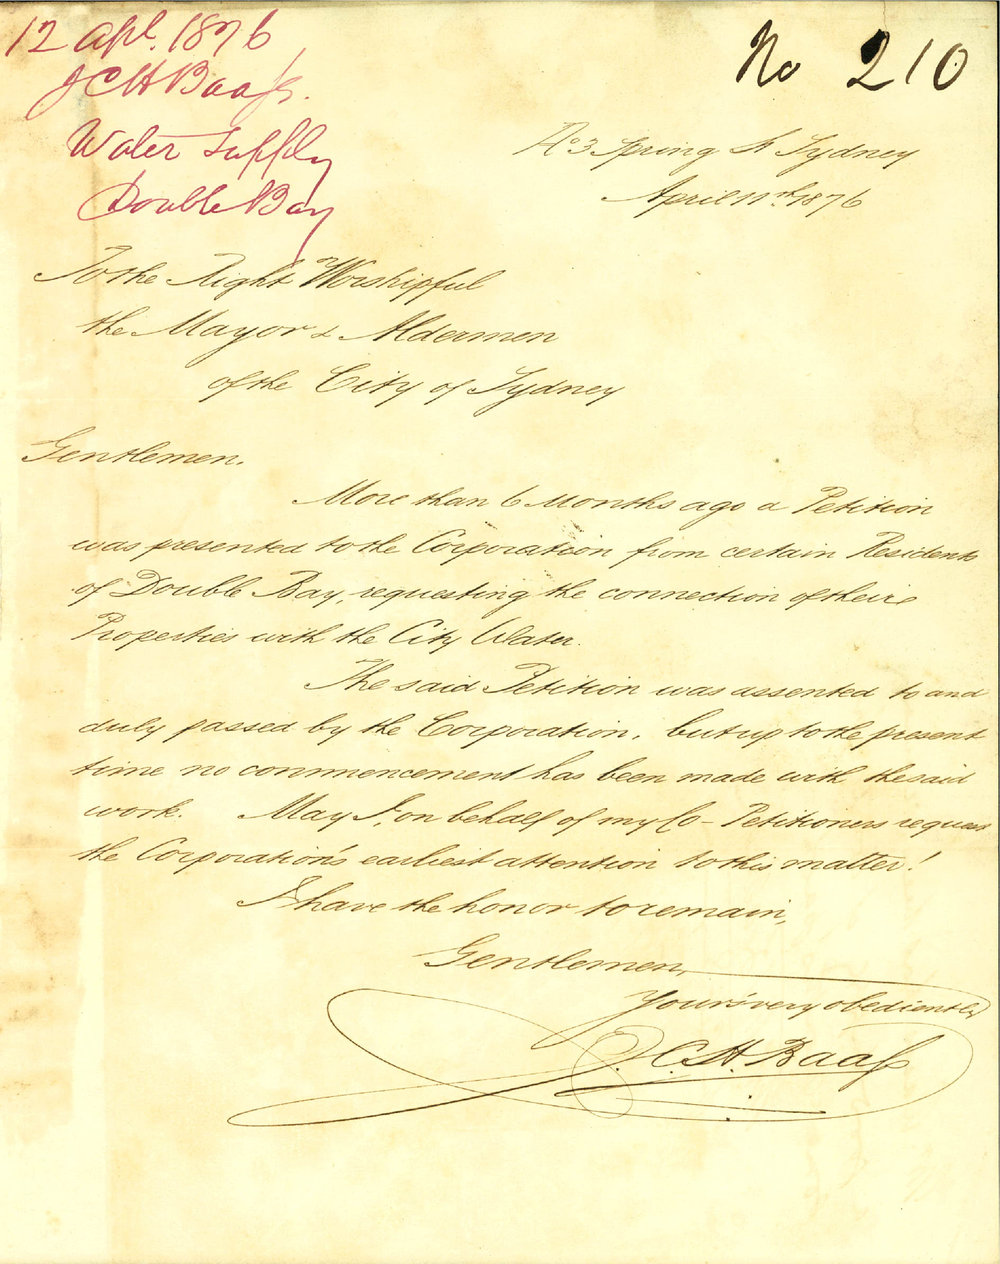 12 Apl. 1876
J C H Baass.
Water Supply
Double Bay
No 210
No 3 Spring St Sydney
April 11th 1876
To the Right Worshipful
the Mayor & Aldermen
of the City of Sydney
Gentlemen.
More than 6 Months ago a Petition
was presented to the Corporation from certain Residents
of Double Bay, requesting the connection of their
Properties with the City Water.
The said Petition was assented to and
duly passed by the Corporation, but up to the present
time no commencement has been made with the said
work. May I, on behalf of my Co-Petitioners request
the Corporation's earliest attention to this matter!
I have the honor to remain,
Gentlemen,
Your's very obediently
J. C. H. Baass